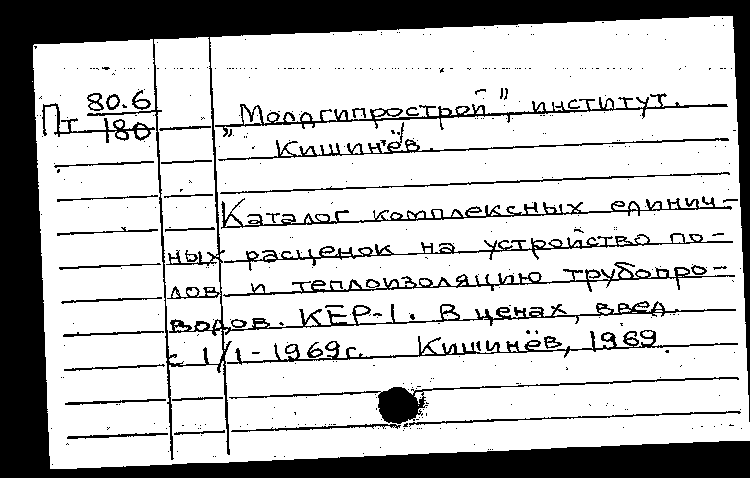 Пт 80.6/180
„Молдгипрострой”, институт.
Кишинёв.
Каталог комплексных единич-
ных расценок на устройство по-
лов и теплоизоляцию трубопро-
водов. КЕР-1. В ценах, введ.
с 1/1-1969г. Кишинёв, 1969.